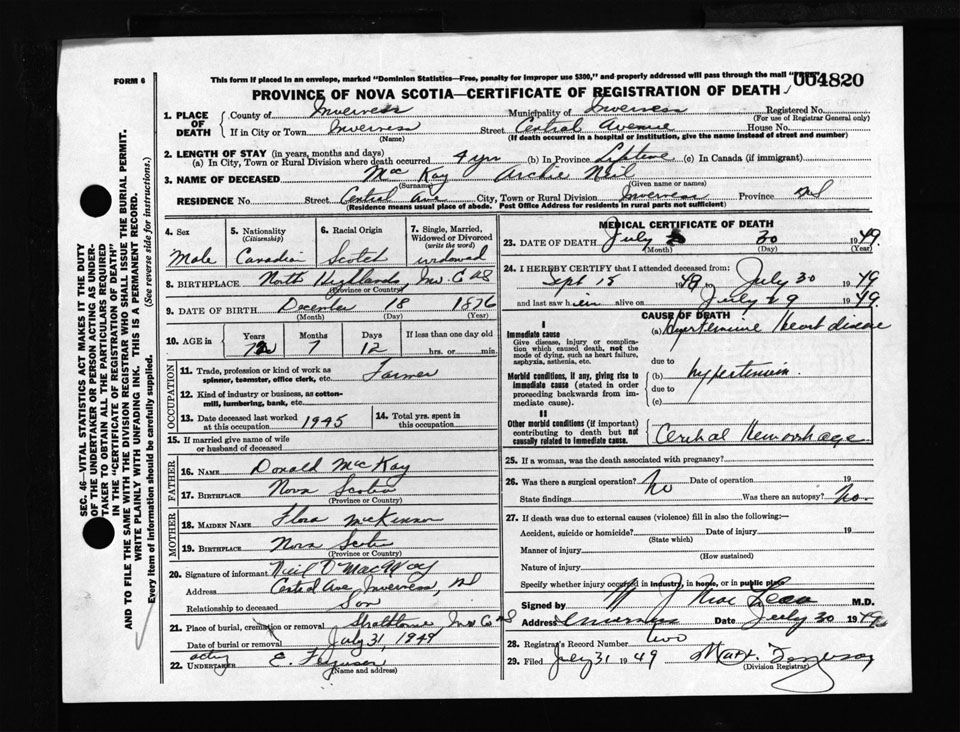 FORM 6
This form if placed in an envelope, marked "Dominion Statistics—Free, penalty for improper use $300," and properly addressed will pass through the mail
004820
PROVINCE OF NOVA SCOTIA—CERTIFICATE OF REGISTRATION OF DEATH
1. PLACE OF DEATH
County of Inverness Municipality of Inverness Registered No.
(For use of Registrar General only)
If in City or Town Inverness Street Central Avenue House No.
(Name) (If death occurred in a hospital or institution, give the name instead of street and number)
2. LENGTH OF STAY (in years, months and days)
(a) In City, Town or Rural Division where death occurred 4 yrs (b) In Province Lifetime (c) In Canada (if immigrant)
3. NAME OF DECEASED Mac Kay Archie Neil
(Surname) (Given name or names)
RESIDENCE No. Street Central Ave City, Town or Rural Division Inverness Province N.S
(Residence means usual place of abode. Post Office Address for residents in rural parts not sufficient)
4. Sex Male
5. Nationality (Citizenship) Canadian
6. Racial Origin Scotch
7. Single, Married, Widowed or Divorced (write the word) widowed
8. BIRTHPLACE North Highlands, Inv. C NS
(Province or Country)
9. DATE OF BIRTH December 18 1876
(Month) (Day) (Year)
10. AGE in Years 72 Months 7 Days 12 If less than one day old
hrs. or min.
OCCUPATION
11. Trade, profession or kind of work as spinner, teamster, office clerk, etc. Farmer
12. Kind of industry or business, as cotton-mill, lumbering, bank, etc.
13. Date deceased last worked at this occupation 1945
14. Total yrs. spent in this occupation
15. If married give name of wife or husband of deceased
FATHER
16. NAME Donald McKay
17. BIRTHPLACE Nova Scotia
(Province or Country)
MOTHER
18. MAIDEN NAME Flora McKinnon
19. BIRTHPLACE Nova Scotia
(Province or Country)
20. Signature of informant Neil D MacKay
Address Central Ave Inverness, NS
Relationship to deceased Son
21. Place of burial, cremation or removal Strathlorne Inv Co NS
Date of burial or removal July 31, 1949
22. acting UNDERTAKER E. Ferguson
(Name and address)
MEDICAL CERTIFICATE OF DEATH
23. DATE OF DEATH July 30 1949
(Month) (Day) (Year)
24. I HEREBY CERTIFY that I attended deceased from:
Sept 15 1948 to July 30 1949
and last saw him alive on July 29 1949
CAUSE OF DEATH
I
Immediate cause
Give disease, injury or complication which caused death, not the mode of dying, such as heart failure, asphyxia, asthenia, etc.
(a) Hypertensive Heart disease
due to
Morbid conditions, if any, giving rise to immediate cause (stated in order proceeding backwards from immediate cause).
(b) hypertension
due to
(c)
II
Other morbid conditions (if important) contributing to death but not causally related to immediate cause.
Cerebral Hemorrhage
25. If a woman, was the death associated with pregnancy?
26. Was there a surgical operation? No Date of operation 19
State findings Was there an autopsy? No.
27. If death was due to external causes (violence) fill in also the following:—
Accident, suicide or homicide? Date of injury 19
(State which)
Manner of injury
(How sustained)
Nature of injury
Specify whether injury occurred in industry, in home, or in public place
Signed by J MacLean M.D.
Address Inverness Date July 30 1949
28. Registrar's Record Number two
29. Filed July 31 1949 Ferguson
(Division Registrar)
SEC. 46—VITAL STATISTICS ACT MAKES IT THE DUTY
OF THE UNDERTAKER OR PERSON ACTING AS UNDER-
TAKER TO OBTAIN ALL THE PARTICULARS REQUIRED
IN THE "CERTIFICATE OF REGISTRATION OF DEATH"
AND TO FILE THE SAME WITH THE DIVISION REGISTRAR WHO SHALL ISSUE THE BURIAL PERMIT.
WRITE PLAINLY WITH UNFADING INK. THIS IS A PERMANENT RECORD.
Every item of information should be carefully supplied. (See reverse side for instructions.)